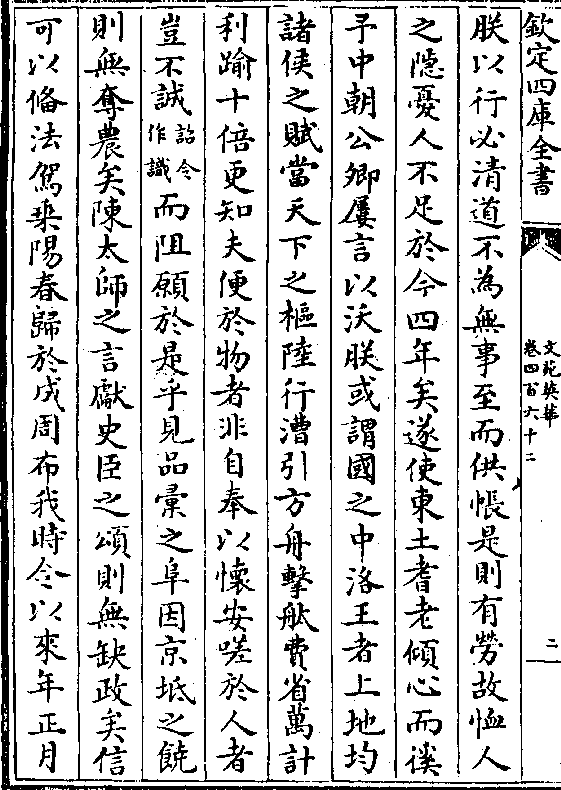 欽定四庫全書
文苑英華
卷四百六十二
二
朕以行必清道不為無事至而供帳是則有勞故恤人
之隠憂人不足於今四年矣遂使東土耆老傾心而徯
予中朝公卿屢言以沃朕或謂國之中洛王者上地均
諸侯之賦當天下之樞陸行漕引方舟擊舩費省萬計
利踰十倍更知夫便於物者非自奉以懷安嗟於人者
豈不誠詔令作識而阻願於是乎見品彙之阜因京坻之饒
則無奪農矣陳太師之言獻史臣之頌則無缺政矣信
可以備法駕乗陽春歸於成周布我時令以來年正月